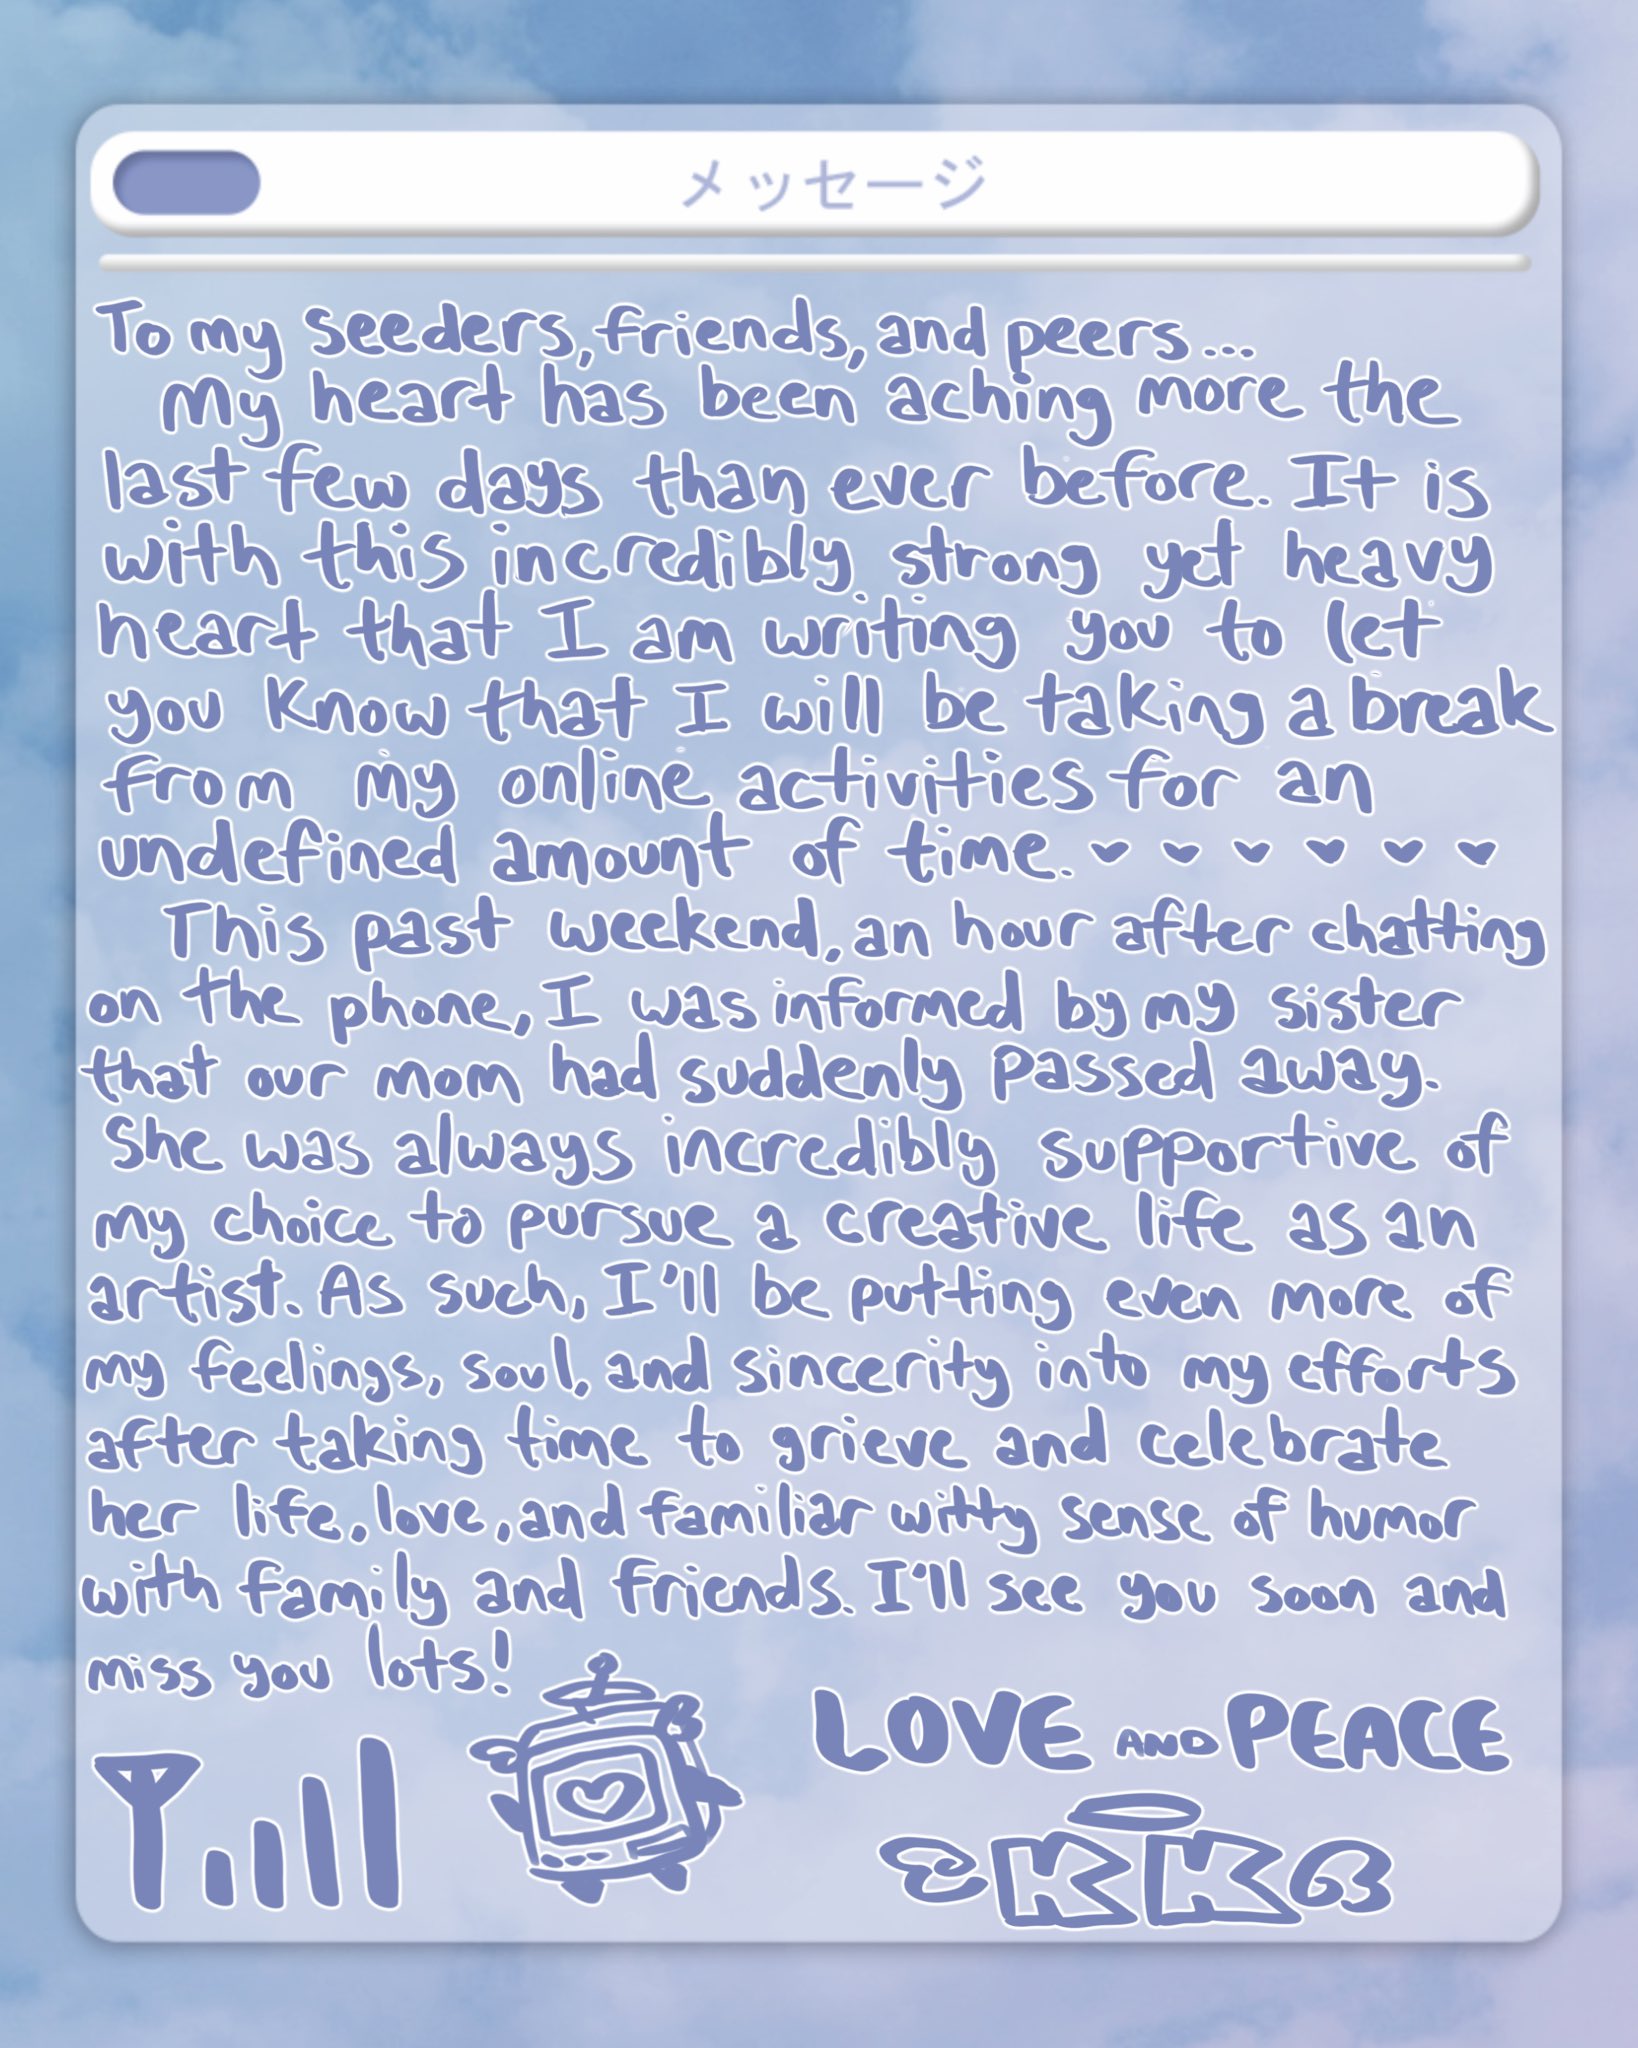 メッセージ
To my seeders, friends, and peers...
My heart has been aching more the
last few days than ever before. It is
with this incredibly strong yet heavy
heart that I am writing you to let
you know that I will be taking a break
from my online activities for an
undefined amount of time.
This past weekend, an hour after chatting
on the phone, I was informed by my sister
that our mom had suddenly passed away.
She was always incredibly supportive of
my choice to pursue a creative life as an
artist. As such, I'll be putting even more of
my feelings, soul, and sincerity into my efforts
after taking time to grieve and celebrate
her life, love, and familiar witty sense of humor
with family and friends. I'll see you soon and
miss you lots!
LOVE AND PEACE
KK